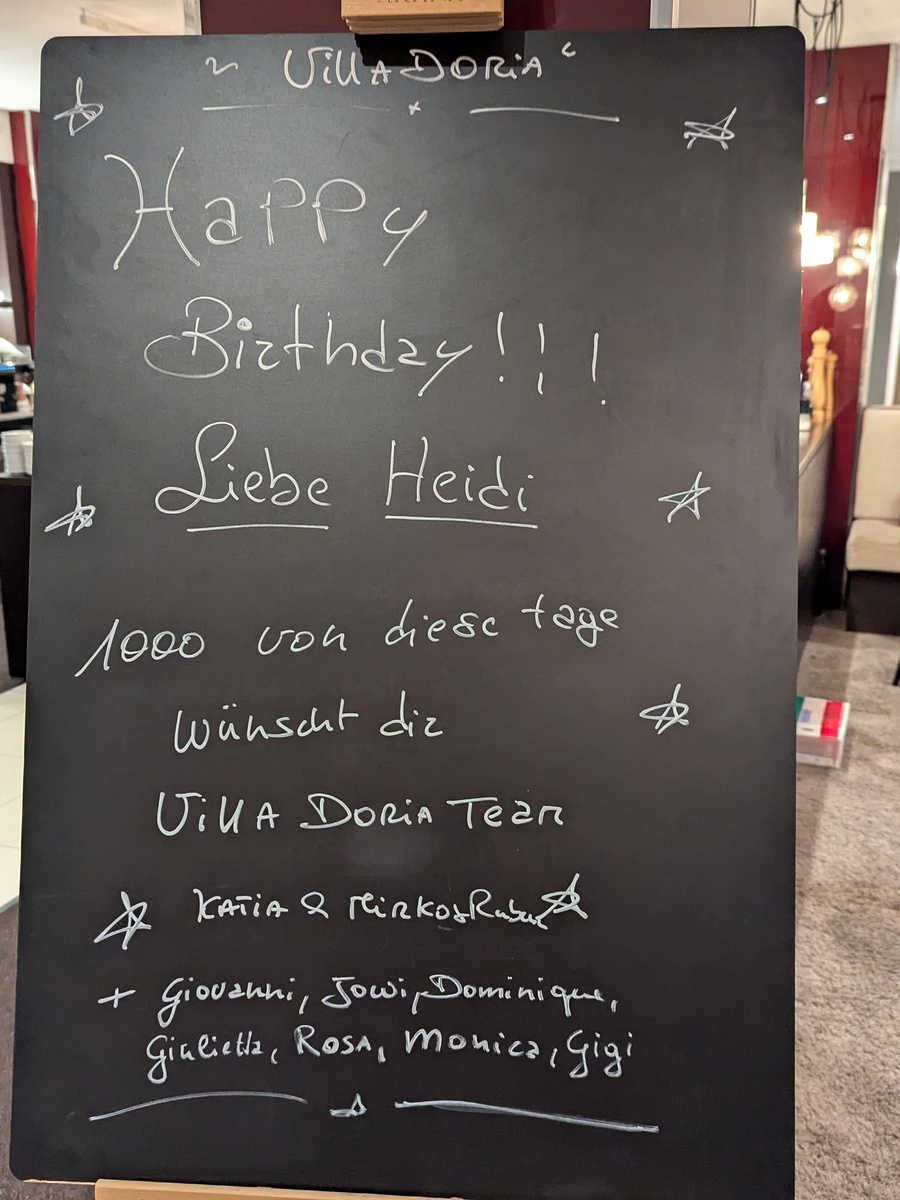 VillA DORiA
HaPPy
Birthday!!!
Liebe Heidi
1000 von diese tage
wünscht dir
VillA DORiA Team
KATiA & MiRKO &
+ Giovanni, Jowi, Dominique,
Giulietta, ROSA, Monica, Gigi